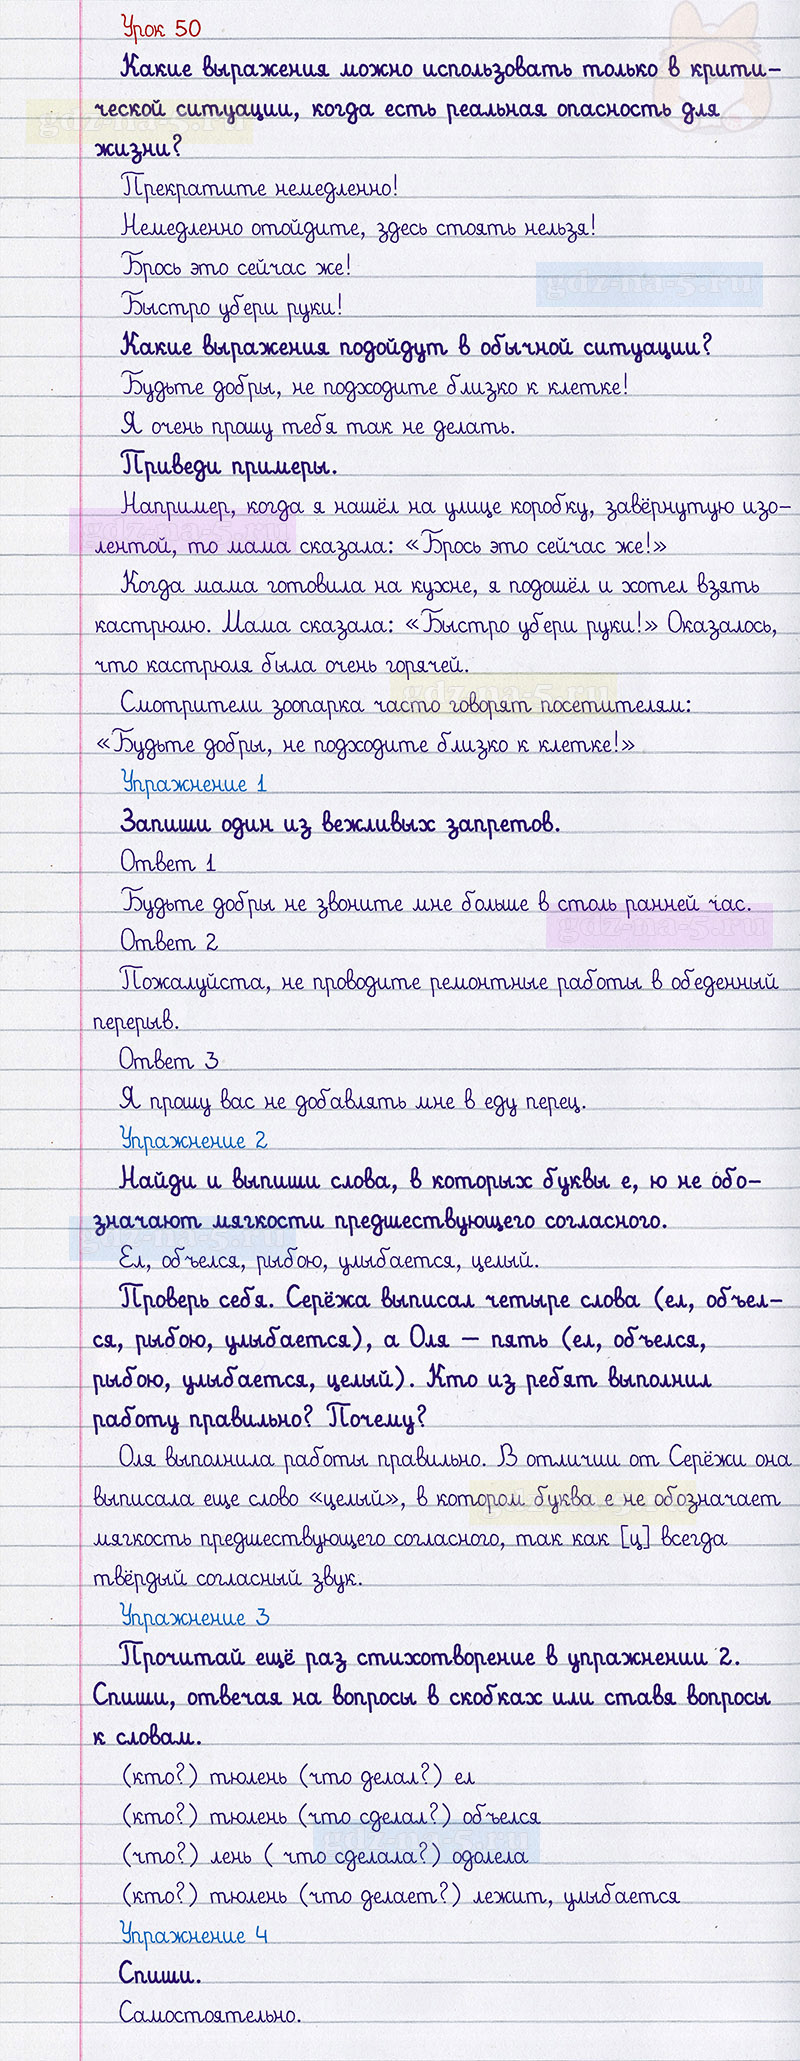 Урок 50
Какие выражения можно использовать только в крити-
ческой ситуации, когда есть реальная опасность для
жизни?
Прекратите немедленно!
Немедленно отойдите, здесь стоять нельзя!
Брось это сейчас же!
gdz-na-5.ru
Быстро убери руки!
Какие выражения подойдут в обычной ситуации?
Будьте добры, не подходите близко к клетке!
Я очень прошу тебя так не делать.
Приведи примеры.
Например, когда я нашёл на улице коробку, завёрнутую изо-
лентой, то мама сказала: «Брось это сейчас же!»
Когда мама готовила на кухне, я подошёл и хотел взять
кастрюлю. Мама сказала: «Быстро убери руки!» Оказалось,
что кастрюля была очень горячей.
gdz-na-5.ru
Смотрители зоопарка часто говорят посетителям:
«Будьте добры, не подходите близко к клетке!»
Упражнение 1
Запиши один из вежливых запретов.
Ответ 1
Будьте добры не звоните мне больше в столь ранней час.
gdz-na-5.ru
Ответ 2
Пожалуйста, не проводите ремонтные работы в обеденный
перерыв.
Ответ 3
Я прошу вас не добавлять мне в еду перец.
Упражнение 2
Найди и выпиши слова, в которых буквы е, ю не обо-
значают мягкости предшествующего согласного.
gdz-na-5.ru
Ел, объелся, рыбою, улыбается, целый.
Проверь себя. Серёжа выписал четыре слова (ел, объел-
ся, рыбою, улыбается), а Оля — пять (ел, объелся,
рыбою, улыбается, целый). Кто из ребят выполнил
работу правильно? Почему?
Оля выполнила работы правильно. В отличии от Серёжи она
выписала еще слово «целый», в котором буква е не обозначает
gdz-na-5.ru
мягкость предшествующего согласного, так как [ц] всегда
твёрдый согласный звук.
Упражнение 3
Прочитай ещё раз стихотворение в упражнении 2.
Спиши, отвечая на вопросы в скобках или ставя вопросы
к словам.
(кто?) тюлень (что делал?) ел
(кто?) тюлень (что сделал?) объелся
gdz-na-5.ru
(что?) лень ( что сделала?) одолела
(кто?) тюлень (что делает?) лежит, улыбается
Упражнение 4
Спиши.
Самостоятельно.